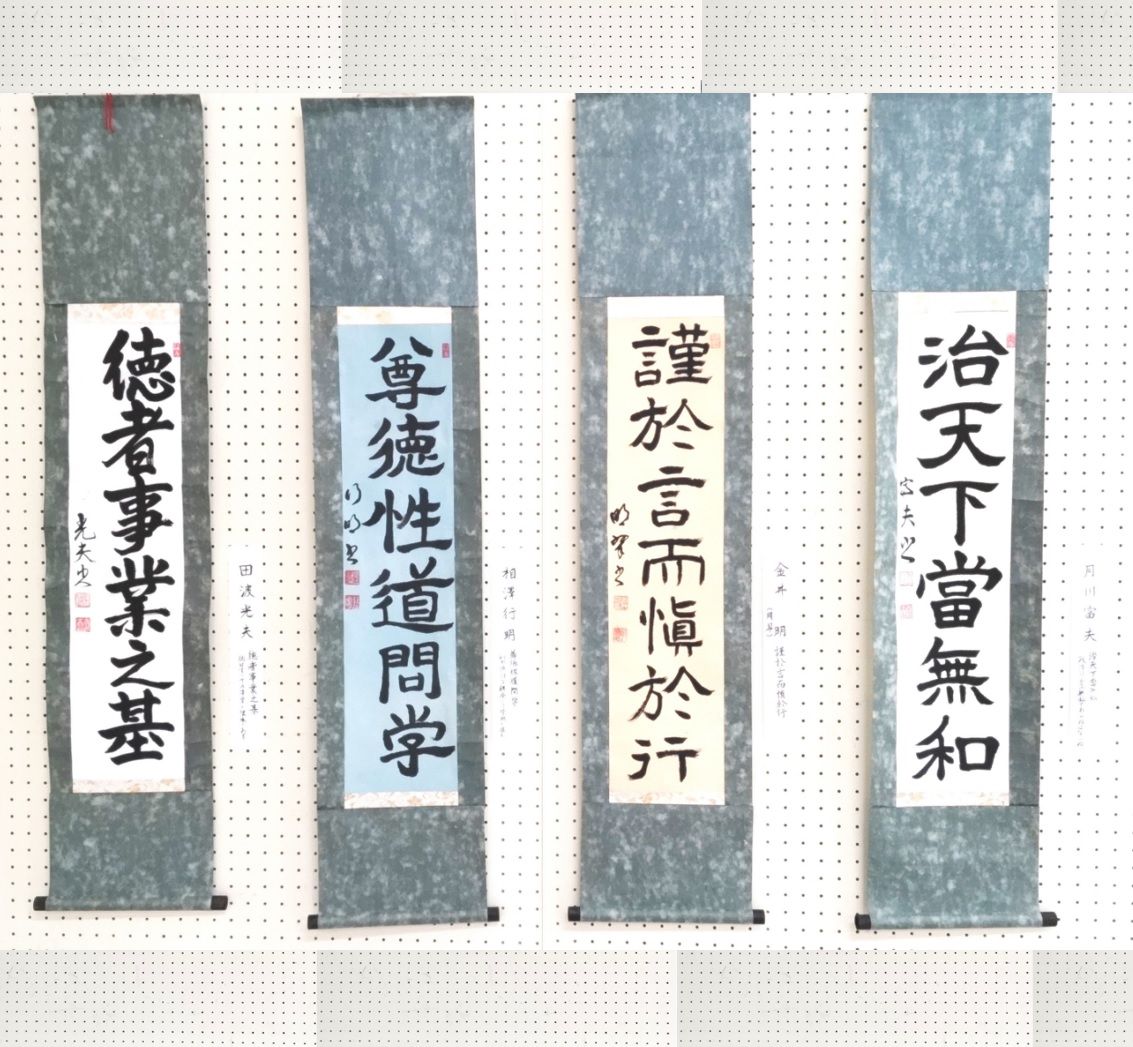 月川富夫
治天下當無和
富夫書
金井 明
謹於言而慎於行
謹於言而愼於行
相澤行明
尊徳性道問学
尊徳性道問学
行明書
田波光夫
徳者事業之基
徳者事業之基
光夫書